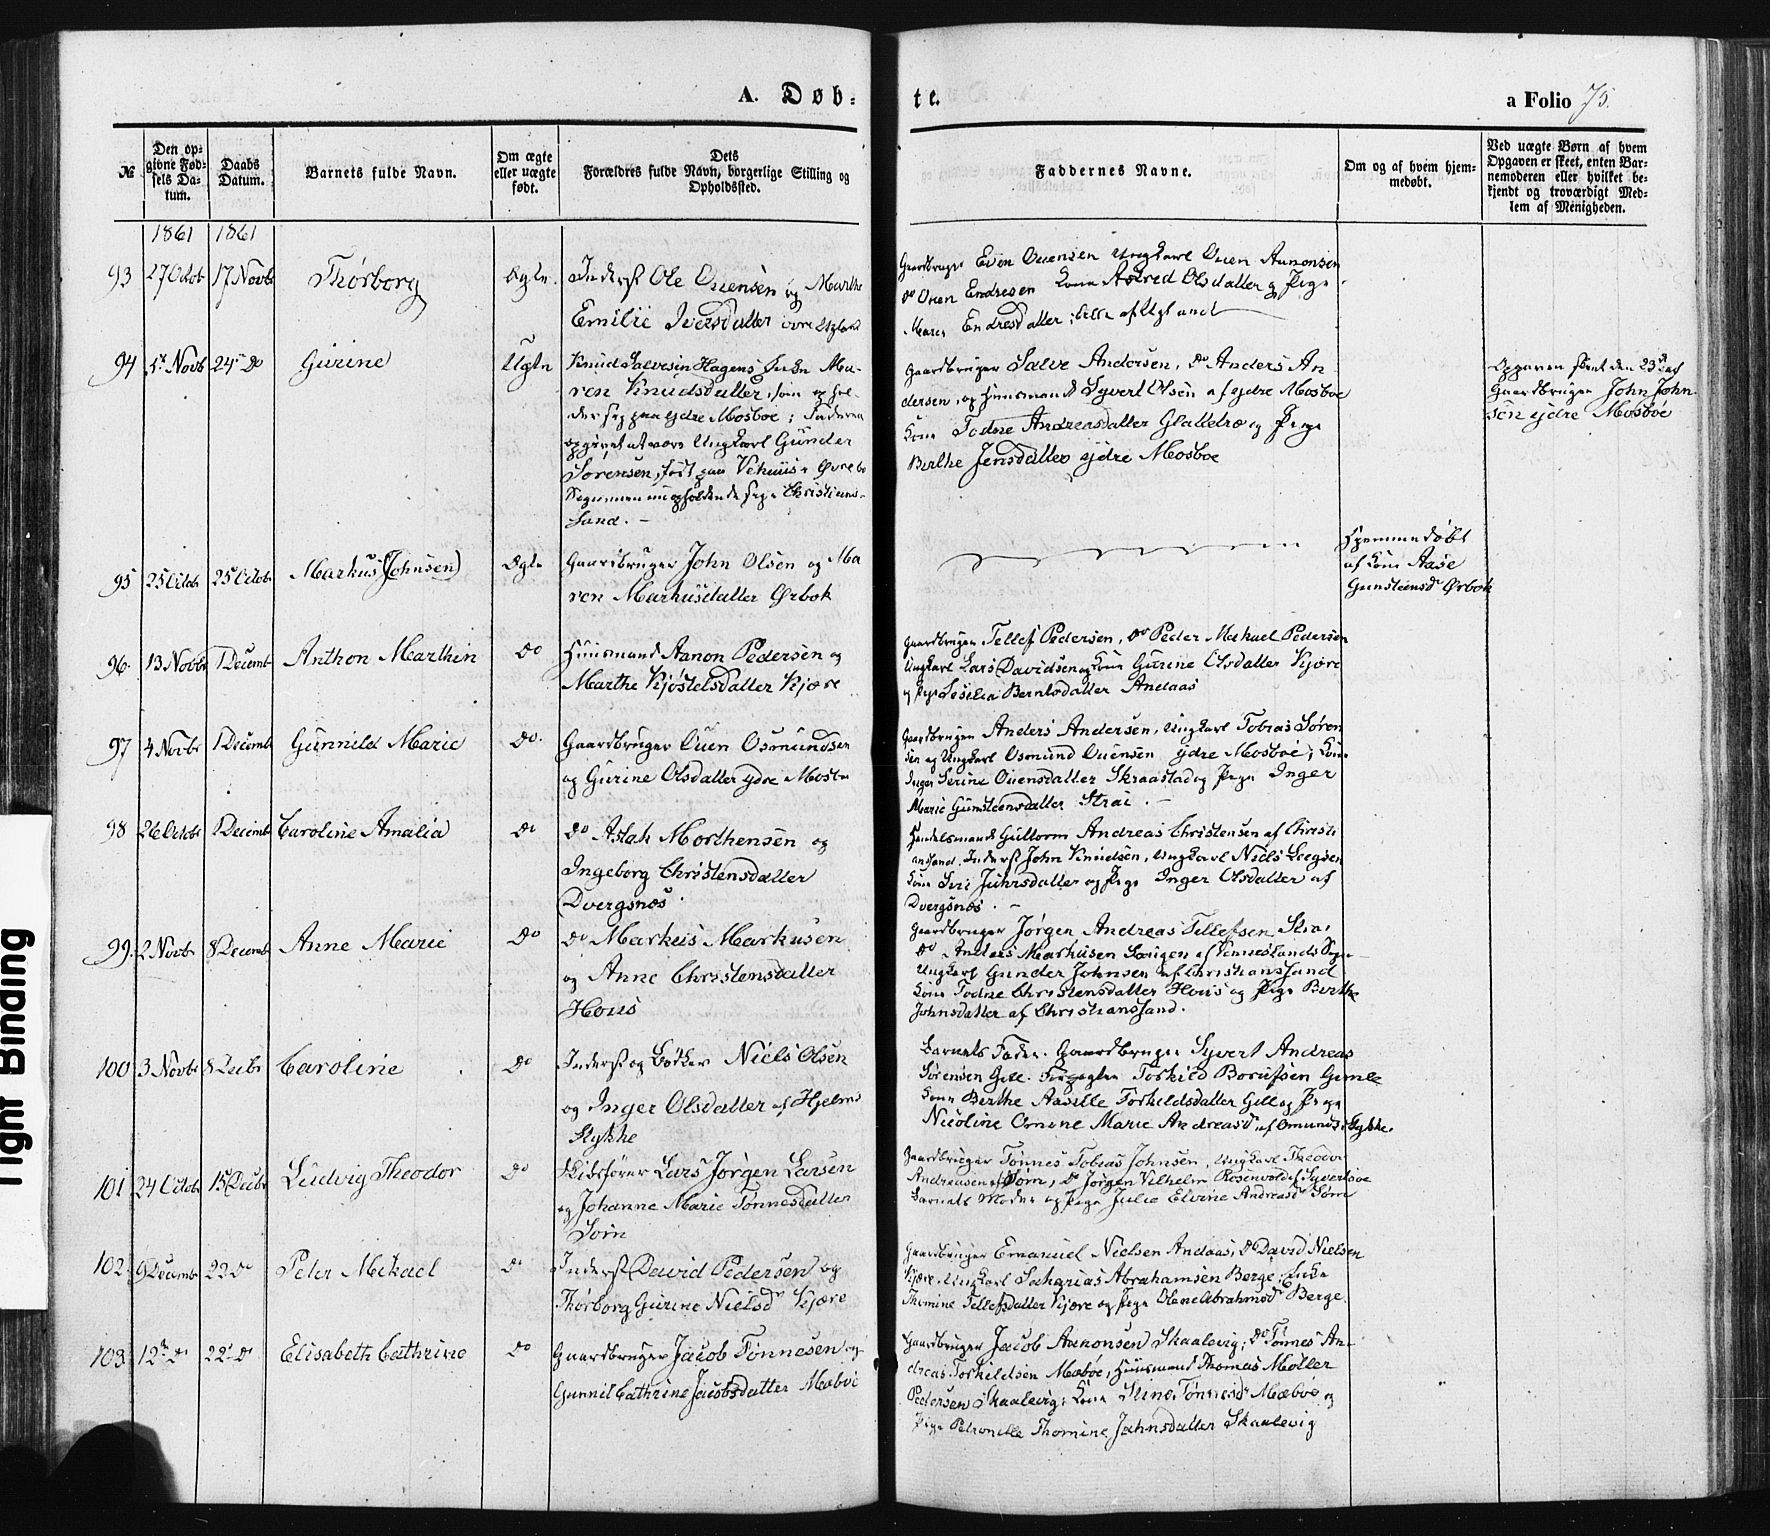 A. Døb-
te.
a Folio 75.
№
Den op-
givne Fød-
sels Da-
tum.
Daabs
Datum.
Barnets fulde Navn.
Om ægte
eller uægte
født.
Dets
Forældres fulde Navn, borgerlige Stilling og
Opholdssted.
Faddernes Navne.
Om og af hvem hjem-
medøbt.
Ved uægte Børn af hvem
Opgaven er skeet, enten Bar-
nemoderen eller hvilket be-
kjendt og troværdigt Med-
lem af Menigheden.
1861 1861
93 27 Octob 17 Novb Thorborg Ægte
Inderst Ole Ouensen og Marthe
Emilie Iversdatter øvre Ugland
Gaardbruger Even Ouensen Ungkarl Ouen Aanonsen
Do Ouen Endresen Kone Astred Olsdatter og Pige
Maren Endresdatter, alle af Ugland
94 5te Novb 24de Do Gurine Uægte
Knud Salvesen Hagens Enke Ma-
ren Knudsdatter, som op hol-
der sig paa ydre Mosboe; Faderen
opgivet at være Ungkarl Gunder
Sørensen, født paa Øvrebo
Sogn men nu opholdende sig i Christians-
sand. -
Gaardbruger Salve Andersen, Do Anders An
dersen, og Huusmand Syvert Olsen af ydre Mosboe
Kone Todne Andreasdatter og Pige
Berthe Jensdatter ydre Mosboe
Opgaven skeet den 23de af
Gaardbruger John John-
sen ydre Mosboe
95 25 Octob 25 Octob Markus (Johnsen) Ægte
Gaardbruger John Olsen og Ma
ren Markusdatter Ørbek
Hjemmedøbt
af Kone Aase
Gunsteensdr Ørbek
96. 13 Novbr 1 Decemb Anthon Marthin Do
Huusmand Aanon Pedersen og
Marthe Kjøstelsdatter Kjære
Gaardbruger Tellef Pedersen, Do Peder Mekael Pedersen
Ungkarl Lars Davidsen og Kone Gurine Olsdatter Kjære
og Pige Sesilia Berntsdatter Andaas
97 4 Novbr 1 Decemb Gunnild Marie Do.
Gaardbruger Ouen Osmundsen
og Gurine Olsdatter ydre Mosboe
Gaardbruger Anders Andersen, Ungkarl Tobias Søren
sen og Ungkarl Osmund Ouensen ydre Mosboe; Kone
Inger Serine Ouensdatter Skraastad og Pige Inger
Marie Gunsteensdatter Strai. -
98 26 Octobr 1 Decemb Caroline Amalia Do
Do Aslak Morthensen og
Ingeborg Christensdatter
Dvergsnæs.
Handelsmand Guttorm Andreas Christensen af Christi
ansand. Inderst John Knudsen, Ungkarl Niels
Kone Siri Juhrsdatter og Pige Inger Olsdatter af
Dvergsnæs. -
99. 2 Novbr 8 Decemb Anne Marie Do
Do Markus Markusen
og Anne Christensdatter
Hous
Gaardbruger Jørgen Andreas Tellefsen Strai
Do Anders Markusen af Venneslands Sogn
Ungkarl Gunder Johnsen af Christianssand
Kone Todne Christensdatter Hous og Pige Berthe
Johnsdatter af Christianssand.
100 3 Novbr 8 Decbr Caroline Do
Inderst og Bødker Niels Olsen
og Inger Olsdatter af Hjelms
Stykke
Barnets Fader. Gaardbruger Syvert Andreas
Sørensen Gill. Forpagter Torkild Borufsen Gimle
Kone Berthe Aasille Torkildsdatter Gill og Pige
Nicoline Omine Marie Andreasdr af Omunds Stykke.
101 24 Octobr 15 Decbr Ludvig Theodor Do
Skibsfører Lars Jørgen Larsen
og Johanne Marie Tønnesdatter
Søm
Gaardbruger Tønnes Tobias Johnsen, Ungkarl Theodor
Andreasen af Søm, Do Jørgen Vilhelm Rosenvold af Syvertsboe
Barnets Moder og Pige Julie Elvine Andreasdr Søm
102 9 Decembr 22 Do Peter Mekael Do
Inderst David Pedersen og
Thorborg Gurine Nielsdr Kjære
Gaardbruger Emanuel Nielsen Andaas, Do David Nielsen
Kjære. Ungkarl Saharias Abrahamsen Berge, Enke
Thomine Tellefsdatter Kjære og Pige Olene Abrahmsdr Berge
103 12te Do 22 Do Elisabeth Cathrine Do
Gaardbruger Jacob Tønnesen og
Gunnil Cathrine Jacobsdatter Mæbøe
Gaardbruger Jacob Aanonsen Skaalevig; Do Tønnes An-
dreas Torkildsen Mæbøe, Huusmand Thomas Møller
Pedersen Skaalevig; Kone Stine Tønnesdr Mæbøe og
Pige Petronelle Thomine Jahnsdatter Skaalevig
Tight Binding